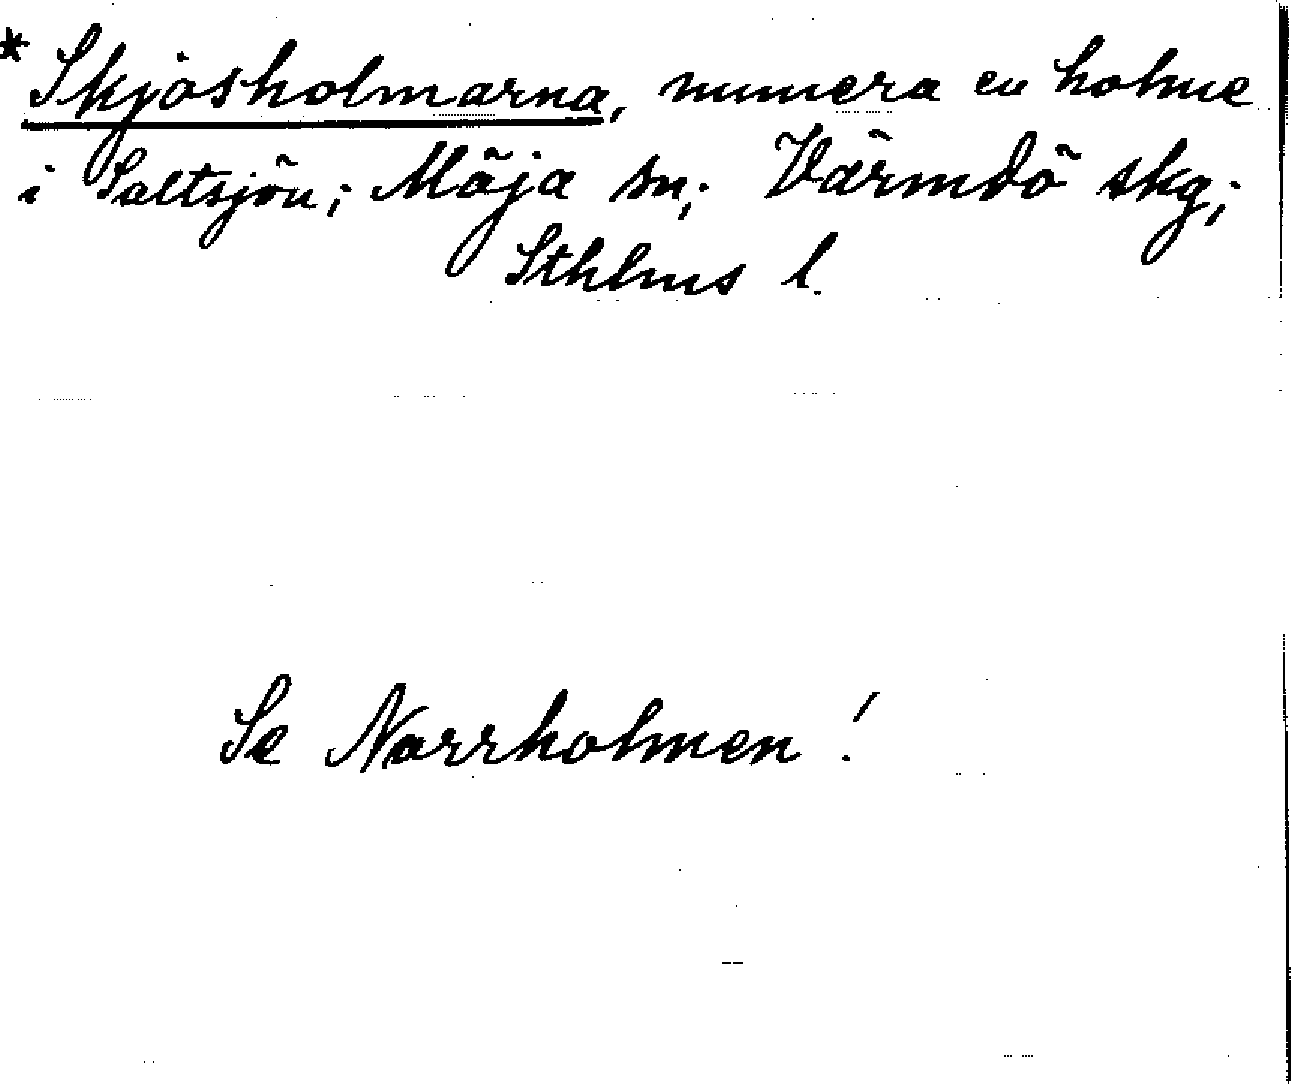 *Skjosholmarna, numera en holme
i Saltsjön; Möja sn; Värmdö skg;
Sthlms l.
Se Norrholmen!